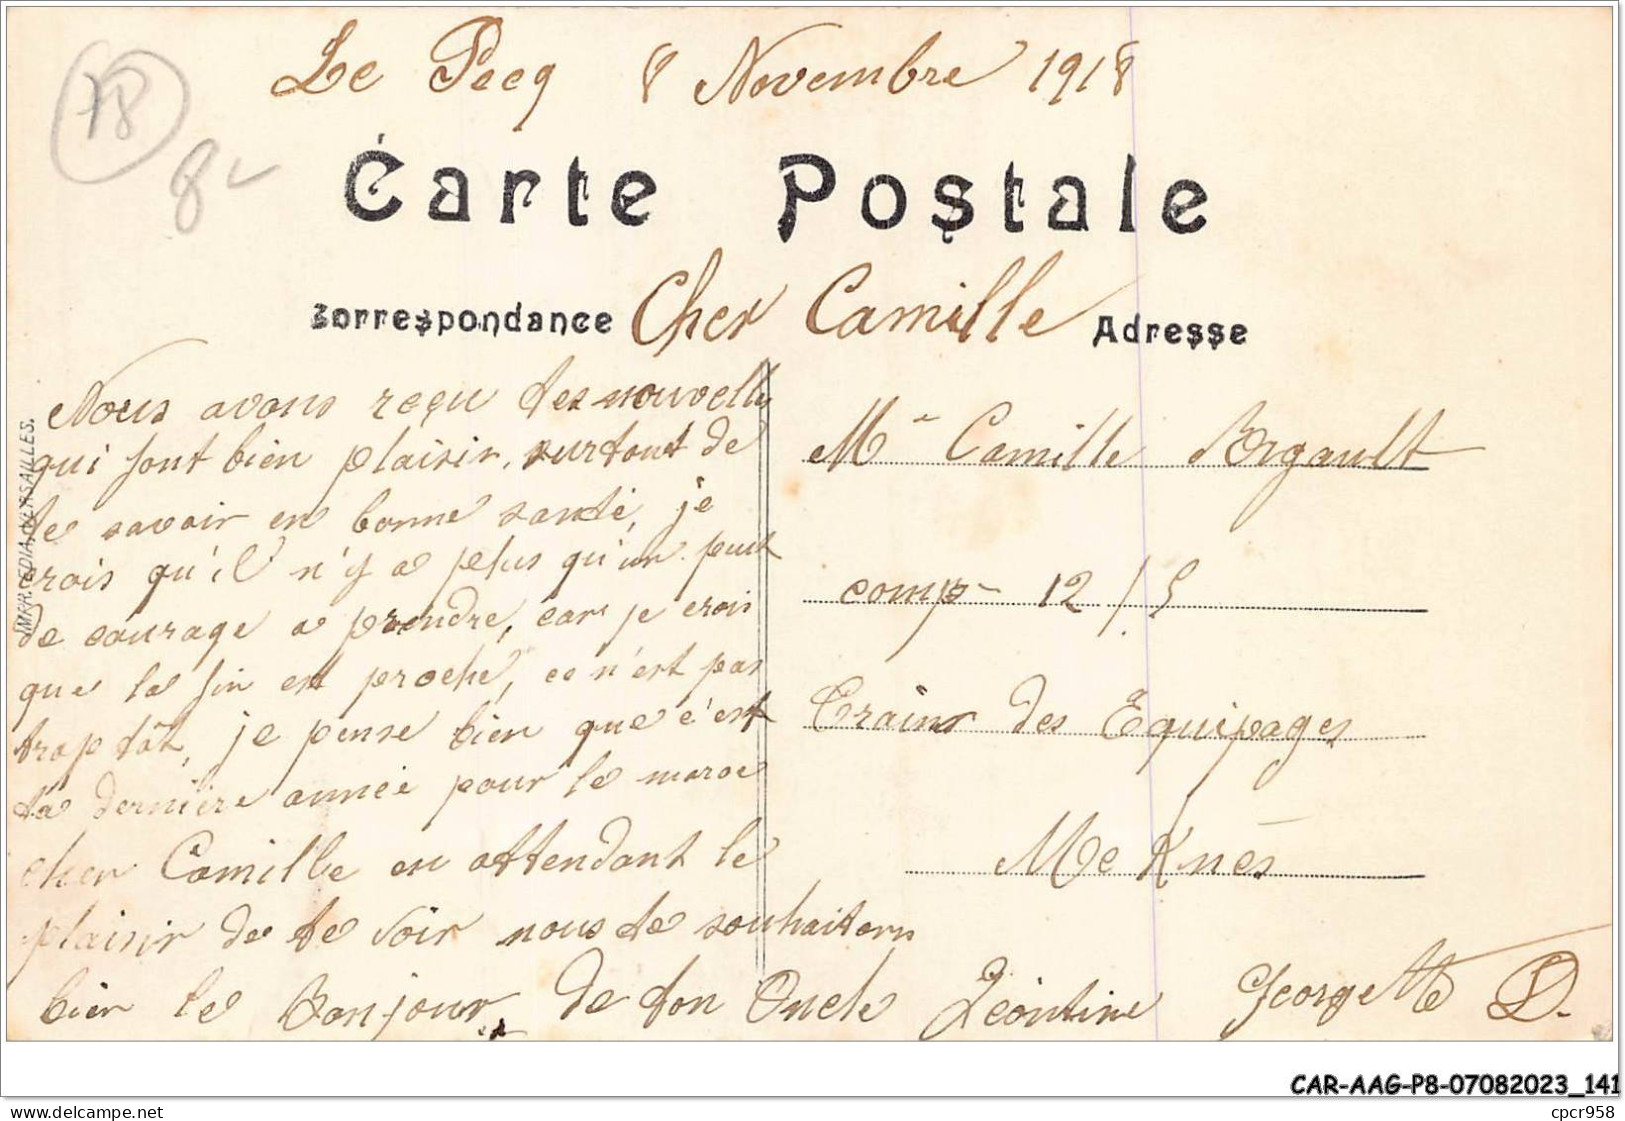 Le Pecq 8 Novembre 1918
78
8
Carte Postale
Correspondance
Cher Camille
Adresse
Nous avons reçu des nouvelles
qui font bien plaisir, surtout de
te savoir en bonne santé, je
crois qu'il n'y a plus qu'un
de courage a prendre, car je crois
que la fin est proche, ce n'est pas
trop tôt, je pense bien que c'est
ta dernière année pour le maroc
cher Camille en attendant le
plaisir de te voir nous te souhaitons
bien le Bonjour, de ton Oncle Léontine Georgette D.
Mr Camille
comp 12/5
Trains des Equipages
MeKnès
IMPR. EDIA. VERSAILLES.
CAR-AAG-P8-07082023_141
www.delcampe.net
cpcr958